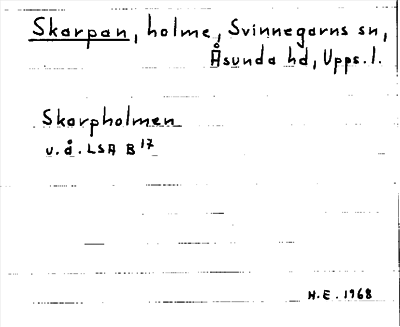 Skarpan, holme, Svinnegarns sn,
Åsunda hd, Upps. l.
Skarpholmen
u.å. LSA B 17
H.E. 1968